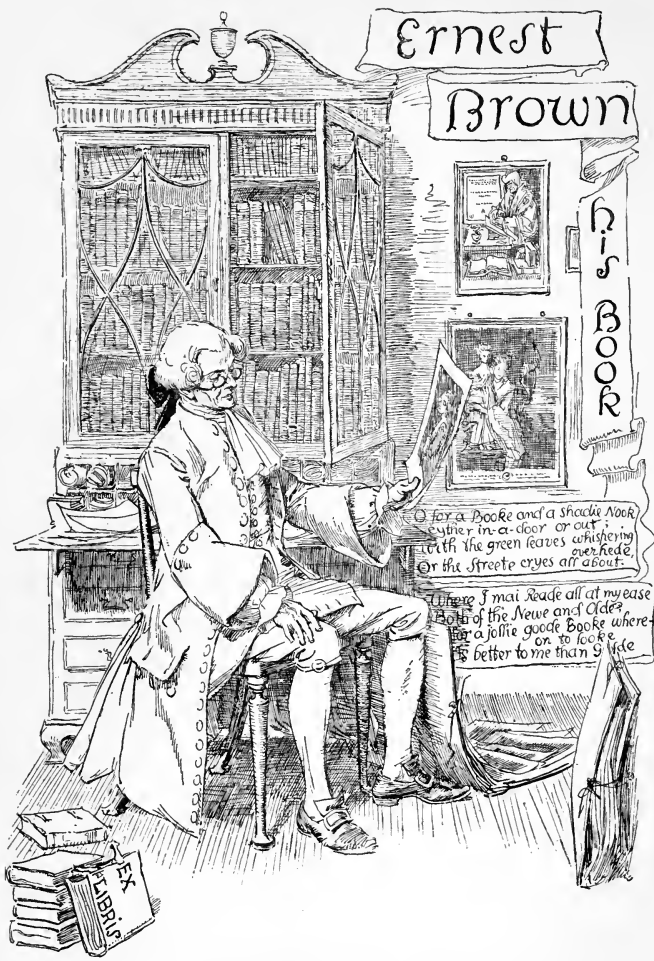 Ernest
Brown
his BOOK
O for a Booke and a shadie Nook
eyther in-a-door or out;
with the green leaves whishering
overhede,
Or the Streete cryes all about.
Where I mai Reade all at my ease
Both of the Newe and Olde?
for a jollie goode Booke where-
on to looke
is better to me than Golde
EX
LIBRIS